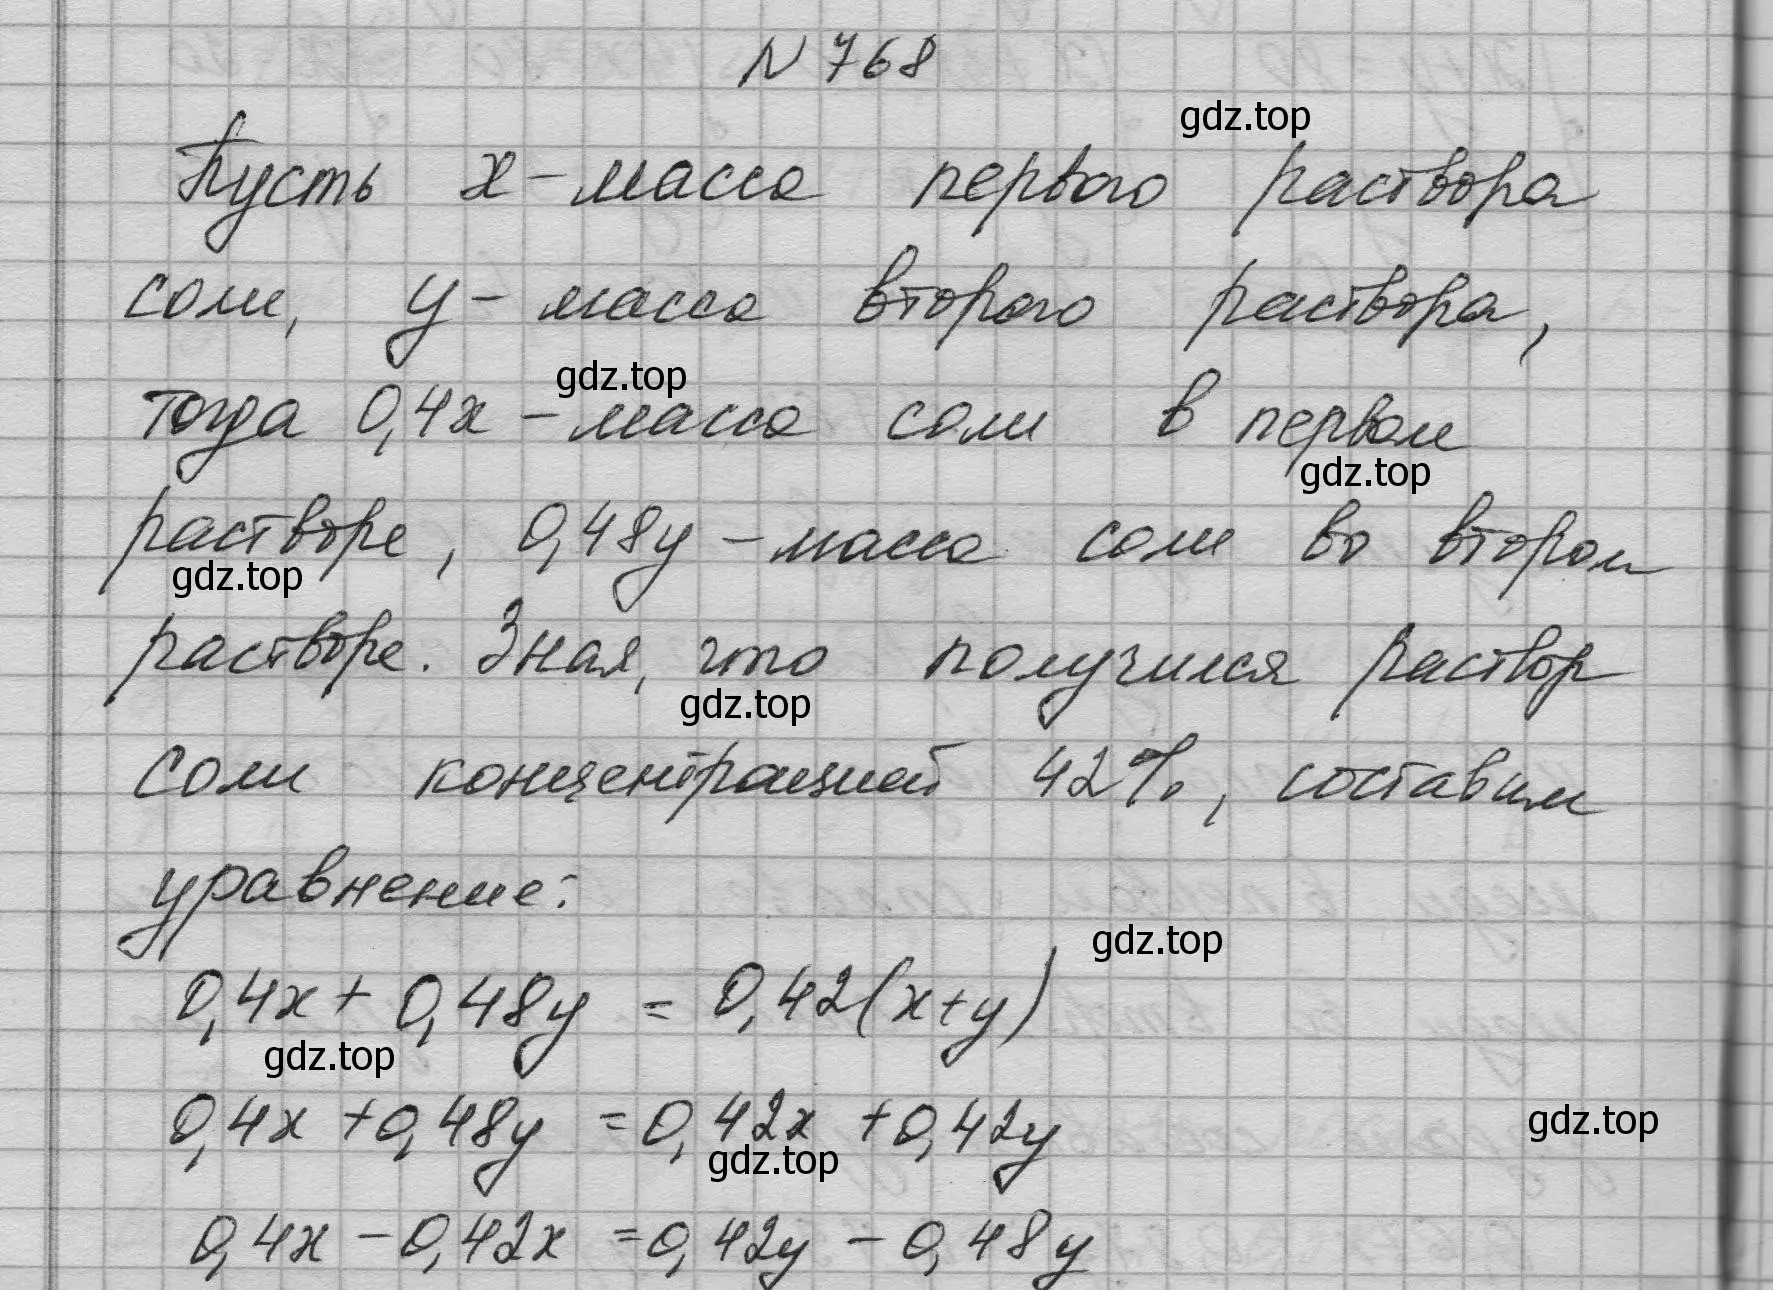 N 768
gdz.top
Пусть x - масса первого раствора
соли, y - масса второго раствора,
gdz.top
тогда 0,4x - масса соли в первом
gdz.top
растворе, 0,48y - масса соли во втором
gdz.top
растворе. Зная, что получился раствор
gdz.top
соли концентрацией 42%, составим
уравнение:
gdz.top
0,4x + 0,48y = 0,42(x+y)
gdz.top
0,4x + 0,48y = 0,42x + 0,42y
gdz.top
gdz.top
0,4x - 0,42x = 0,42y - 0,48y